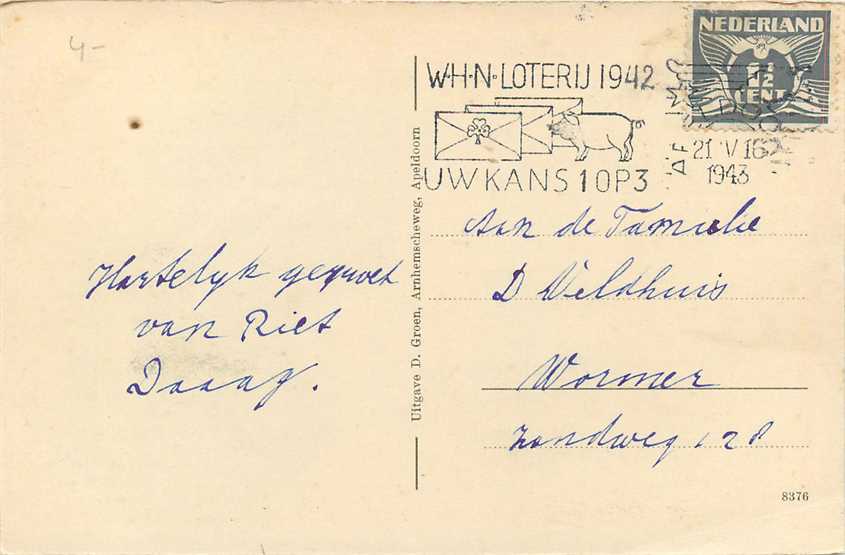 4-
W·H·N·LOTERIJ 1942
UW KANS 1 OP 3
NEDERLAND
1½
CENT
21 V 16
1943
Hartelyk gegroet
van Riet
Daaag.
Uitgave D. Groen, Arnhemscheweg, Apeldoorn
Aan de Familie
D Veldhuis
Wormer
Zandweg 128
8376